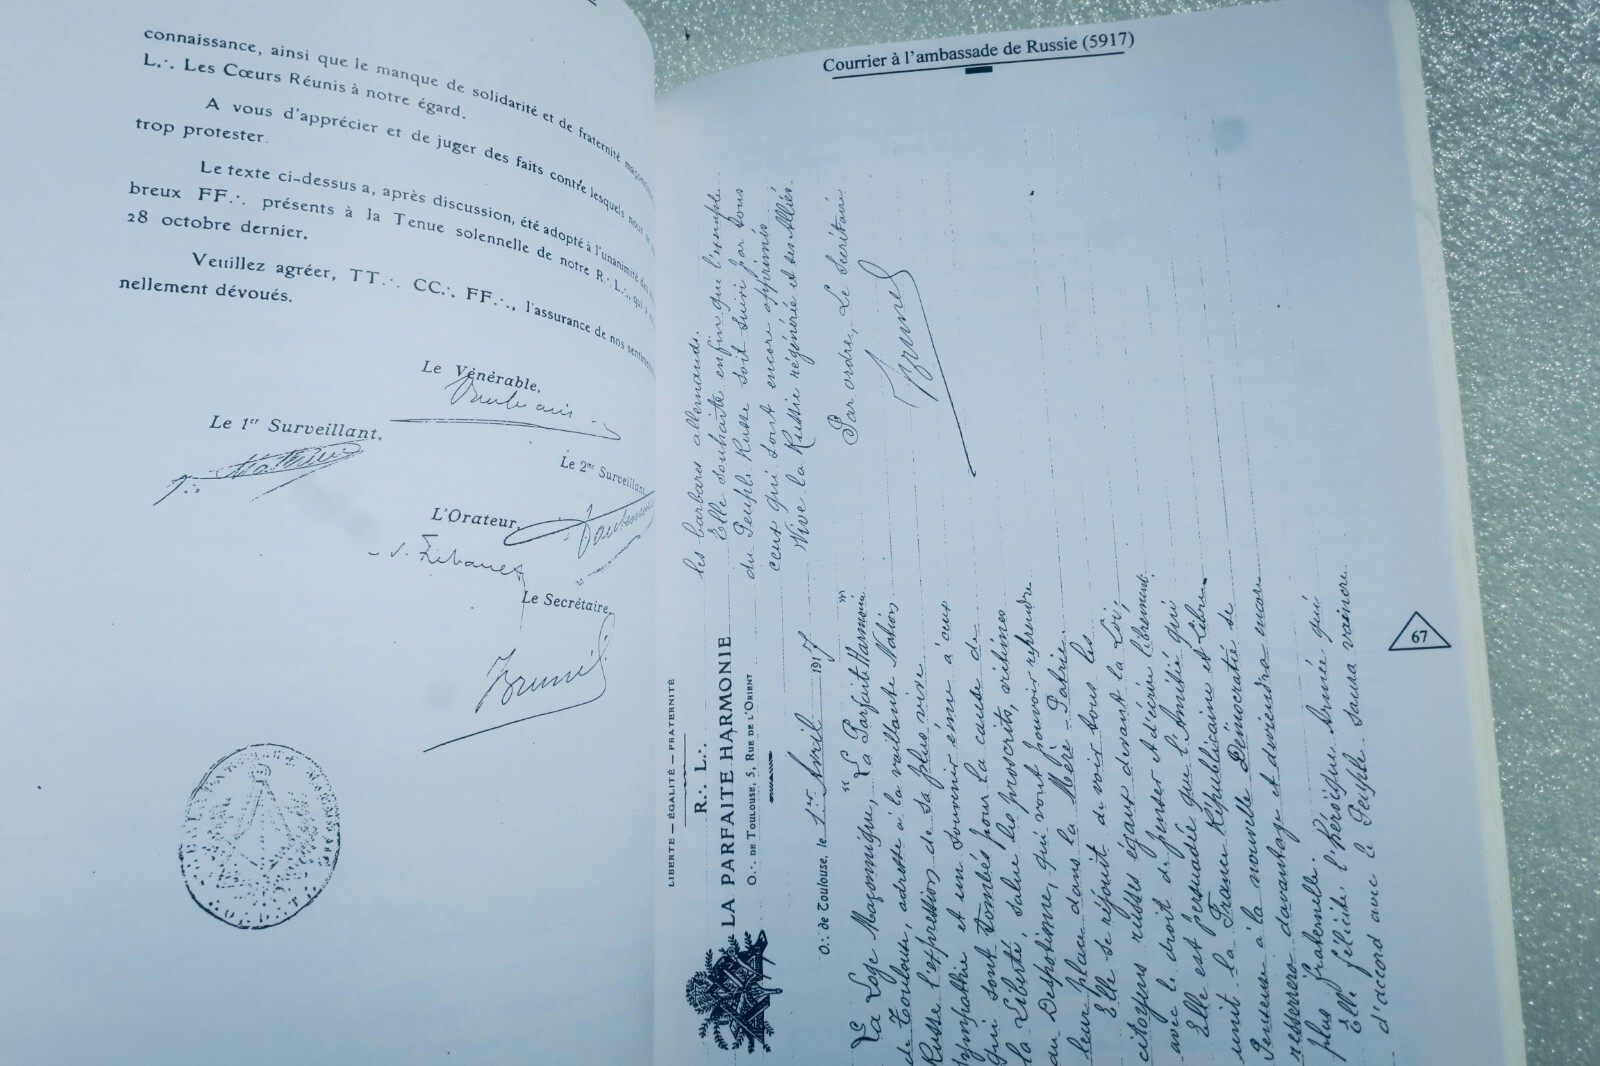 connaissance, ainsi que le manque de solidarité et de fraternité
L∴ Les Cœurs Réunis à notre égard.
A vous d'apprécier et de juger des faits contre lesquels nous
trop protester.
Le texte ci-dessus a, après discussion, été adopté à l'unanimité des
breux FF∴ présents à la Tenue solennelle de notre R∴ L∴, qui a
28 octobre dernier.
Veuillez agréer, TT∴ CC∴ FF∴, l'assurance de nos
nellement dévoués.
Le Vénérable,
Le 1er Surveillant,
Le 2me Surveillant
L'Orateur,
Le Secrétaire,
Brunel
Courrier à l'ambassade de Russie (5917)
LIBERTÉ — ÉGALITÉ — FRATERNITÉ
R∴ L∴
LA PARFAITE HARMONIE
O∴ DE TOULOUSE, 5, RUE DE L'ORIENT
O∴ de Toulouse, le 1er Avril 1917
La Loge Maçonnique, "La Parfaite Harmonie"
de Toulouse, adresse à la vaillante Nation
Russe l'expression de sa plus vive
sympathie et un souvenir ému à ceux
qui sont tombés pour la cause de
la Liberté, salue les proscrits, victimes
du Despotisme, qui vont pouvoir reprendre
leur place dans la Mère-Patrie.
Elle se réjouit de voir tous les
citoyens russes égaux devant la Loi,
avec le droit de penser et d'écrire librement.
Elle est persuadée que l'Amitié qui
unit la France Républicaine et Libre
Penseuse à la nouvelle Démocratie se
resserrera davantage et deviendra encore
plus fraternelle.
Elle félicite l'héroïque Armée qui
d'accord avec le Peuple saura vaincre
les barbares allemands.
Elle souhaite enfin que l'exemple
du Peuple Russe soit suivi par tous
ceux qui sont encore opprimés.
Vive la Russie régénérée et ses Alliés.
Par ordre, Le Secrétaire
Brunel
67